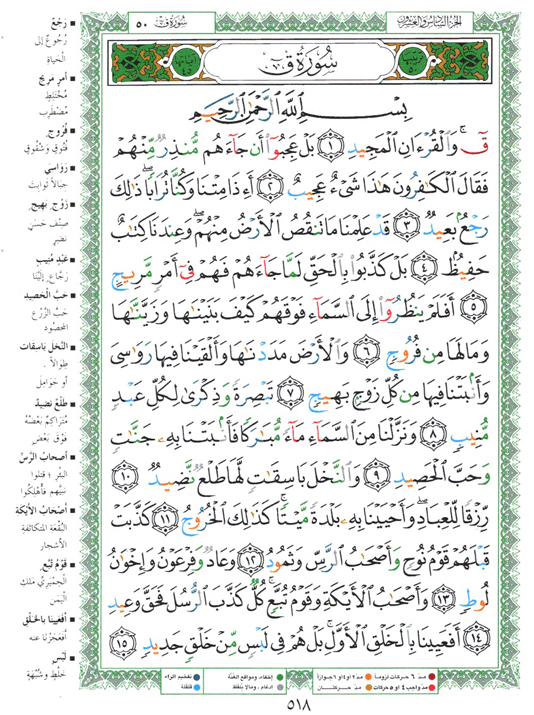 الجزء السادس والعشرون
سورة ق ٥٠
سُورَةُ ق
بِسْمِ اللَّهِ الرَّحْمَٰنِ الرَّحِيمِ
قٓ ۚ وَالْقُرْءَانِ الْمَجِيدِ ﴿١﴾ بَلْ عَجِبُوٓا أَن جَآءَهُم مُّنذِرٌ مِّنْهُمْ
فَقَالَ الْكَٰفِرُونَ هَٰذَا شَىْءٌ عَجِيبٌ ﴿٢﴾ أَءِذَا مِتْنَا وَكُنَّا تُرَابًا ۖ ذَٰلِكَ
رَجْعٌۢ بَعِيدٌ ﴿٣﴾ قَدْ عَلِمْنَا مَا تَنقُصُ الْأَرْضُ مِنْهُمْ ۖ وَعِندَنَا كِتَٰبٌ
حَفِيظٌۢ ﴿٤﴾ بَلْ كَذَّبُوا بِالْحَقِّ لَمَّا جَآءَهُمْ فَهُمْ فِىٓ أَمْرٍ مَّرِيجٍ
﴿٥﴾ أَفَلَمْ يَنظُرُوٓا إِلَى السَّمَآءِ فَوْقَهُمْ كَيْفَ بَنَيْنَٰهَا وَزَيَّنَّٰهَا
وَمَا لَهَا مِن فُرُوجٍ ﴿٦﴾ وَالْأَرْضَ مَدَدْنَٰهَا وَأَلْقَيْنَا فِيهَا رَوَٰسِىَ
وَأَنۢبَتْنَا فِيهَا مِن كُلِّ زَوْجٍۭ بَهِيجٍ ﴿٧﴾ تَبْصِرَةً وَذِكْرَىٰ لِكُلِّ عَبْدٍ
مُّنِيبٍ ﴿٨﴾ وَنَزَّلْنَا مِنَ السَّمَآءِ مَآءً مُّبَٰرَكًا فَأَنۢبَتْنَا بِهِۦ جَنَّٰتٍ
وَحَبَّ الْحَصِيدِ ﴿٩﴾ وَالنَّخْلَ بَاسِقَٰتٍ لَّهَا طَلْعٌ نَّضِيدٌ ﴿١٠﴾
رِّزْقًا لِّلْعِبَادِ ۖ وَأَحْيَيْنَا بِهِۦ بَلْدَةً مَّيْتًا ۚ كَذَٰلِكَ الْخُرُوجُ ﴿١١﴾ كَذَّبَتْ
قَبْلَهُمْ قَوْمُ نُوحٍ وَأَصْحَٰبُ الرَّسِّ وَثَمُودُ ﴿١٢﴾ وَعَادٌ وَفِرْعَوْنُ وَإِخْوَٰنُ
لُوطٍ ﴿١٣﴾ وَأَصْحَٰبُ الْأَيْكَةِ وَقَوْمُ تُبَّعٍ ۚ كُلٌّ كَذَّبَ الرُّسُلَ فَحَقَّ وَعِيدِ
﴿١٤﴾ أَفَعَيِينَا بِالْخَلْقِ الْأَوَّلِ ۚ بَلْ هُمْ فِى لَبْسٍ مِّنْ خَلْقٍ جَدِيدٍ ﴿١٥﴾
رَجْعٌ
رُجُوعٌ إلى
الحَيَاةِ
أمْرٍ مَرِيجٍ
مُخْتَلِطٍ
مُضْطَرِبٍ
فُرُوجٍ
فُتُوقٍ وَشُقُوقٍ
رَوَاسِيَ
جِبَالاً ثَوابِتَ
زَوْجٍ بَهِيجٍ
صِنْفٍ حَسَنٍ
نَضِرٍ
عَبْدٍ مُنِيبٍ
رَجَّاعٍ إلَيْنَا
حَبَّ الْحَصِيدِ
حَبَّ الزَّرْعِ
المحصُودِ
النَّخْلَ بَاسِقَاتٍ
طِوَالاً
أو حَوَامِلَ
طَلْعٌ نَضِيدٌ
مُتَرَاكِمٌ بَعْضُهُ
فَوْقَ بَعْضٍ
أصْحَابُ الرَّسِّ
البئرِ ؛ قتلوا
نبيّهم فأهلِكُوا
أصْحَابُ الأيْكَةِ
البُقْعَةِ المتكاثفةِ
الأشجارِ
قَوْمُ تُبَّعٍ
الحِمْيَرِيِّ مَلِكِ
اليَمَنِ
أفَعَيِينَا بالخَلْقِ
أفعجزْنا عنه
لَبْسٍ
خَلْطٍ وشُبْهَةٍ
مدّ ٦ حركات لزوماً
مدّ ٢ أو ٤ أو ٦ جوازاً
إخفاء، ومواقع الغُنّة
تفخيم الراء
مدّ واجب ٤ أو ٥ حركات
مدّ حركتان
ادغام، وما لا يُلفَظ
قلقلة
٥١٨